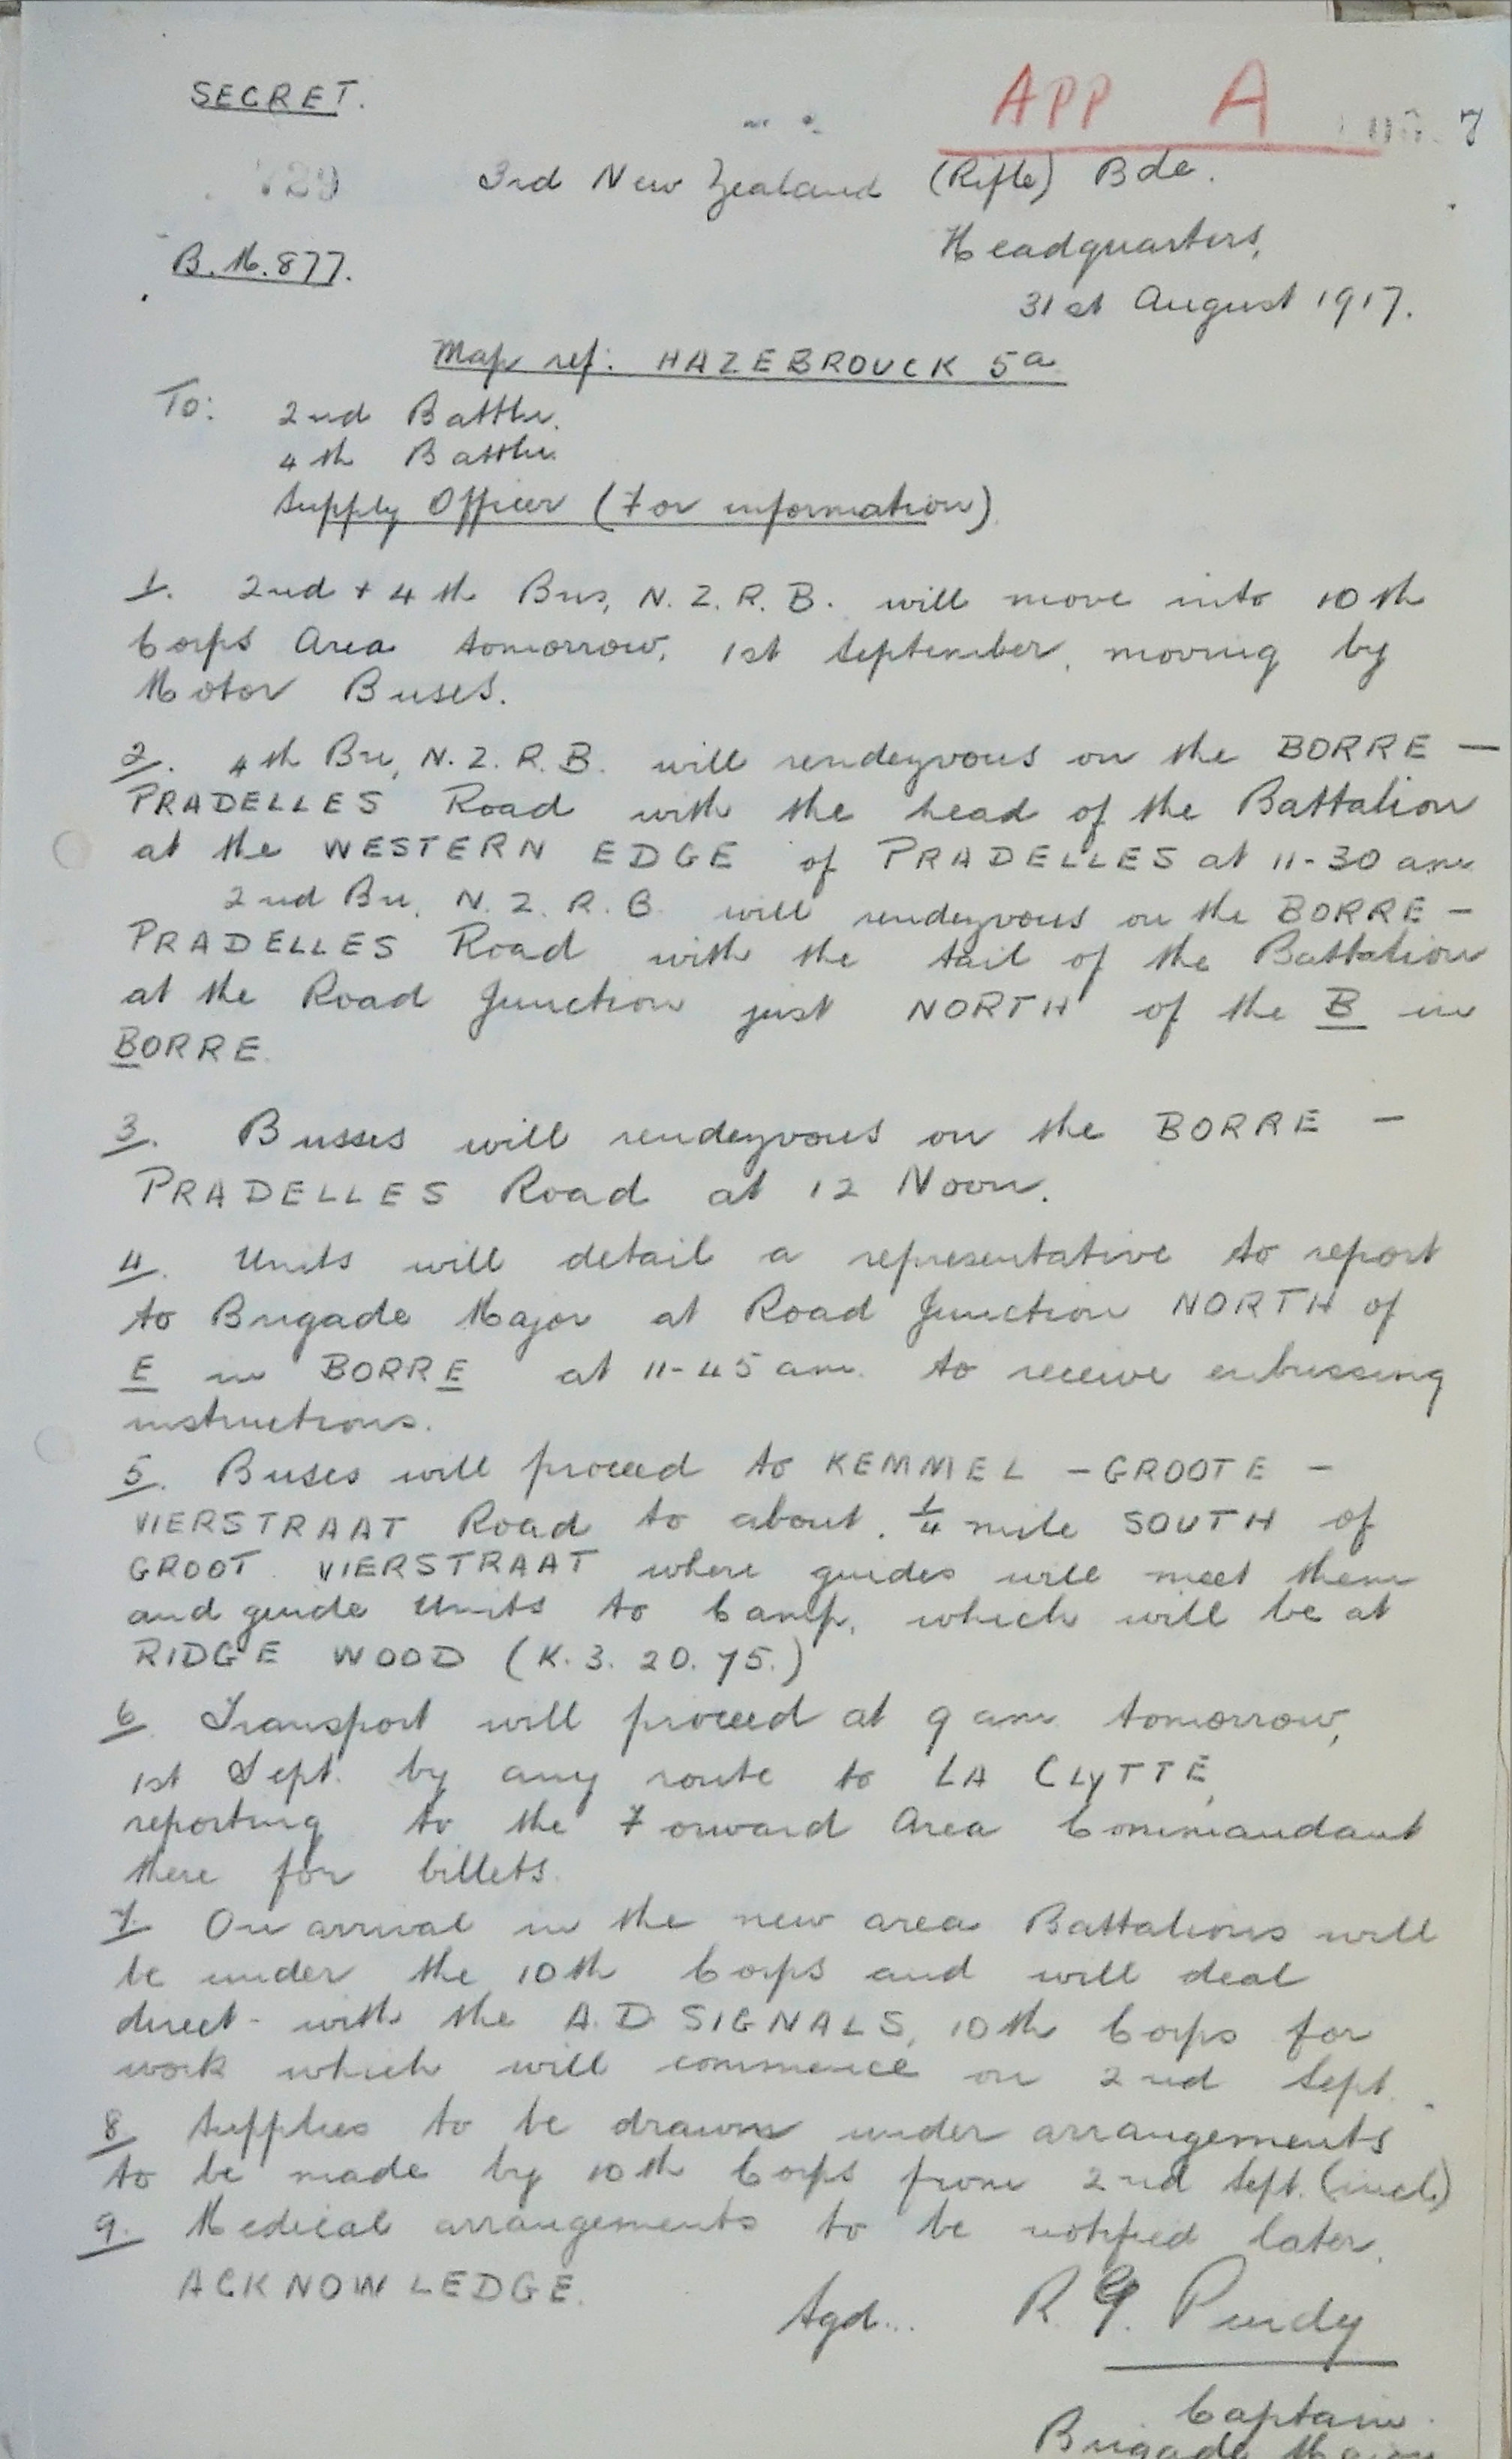 SECRET.
APP A
7
3rd New Zealand (Rifle) Bde.
Headquarters,
B.M.877.
31st August 1917.
Map ref: HAZEBROUCK 5a
To: 2nd Battln.
4th Battln.
Supply Officer (For information)
1. 2nd + 4th Bns, N.Z.R.B. will move into 10th
Corps Area tomorrow, 1st September, moving by
Motor Buses.
2. 4th Bn, N.Z.R.B. will rendezvous on the BORRE —
PRADELLES Road with the head of the Battalion
at the WESTERN EDGE of PRADELLES at 11-30 am
2nd Bn, N.Z.R.B. will rendezvous on the BORRE —
PRADELLES Road with the tail of the Battalion
at the Road Junction just NORTH of the B in
BORRE.
3. Busses will rendezvous on the BORRE —
PRADELLES Road at 12 Noon.
4. Units will detail a representative to report
to Brigade Major at Road Junction NORTH of
E in BORRE at 11-45 am. to receive enbussing
instructions.
5. Buses will proceed to KEMMEL — GROOTE —
VIERSTRAAT Road to about ¼ mile SOUTH of
GROOT VIERSTRAAT where guides will meet them
and guide Units to Camp, which will be at
RIDGE WOOD (K.3.20.75.)
6. Transport will proceed at 9 am tomorrow,
1st Sept. by any route to LA CLYTTE,
reporting to the Forward Area Commandant
there for billets.
7. On arrival in the new area Battalions will
be under the 10th Corps and will deal
direct - with the A.D. SIGNALS, 10th Corps for
work which will commence on 2nd Sept.
8. Supplies to be drawn under arrangements
to be made by 10th Corps from 2nd Sept. (incl.)
9. Medical arrangements to be notified later.
ACKNOWLEDGE.
Sgd... R. G. Purdy
Captain.
Brigade Major